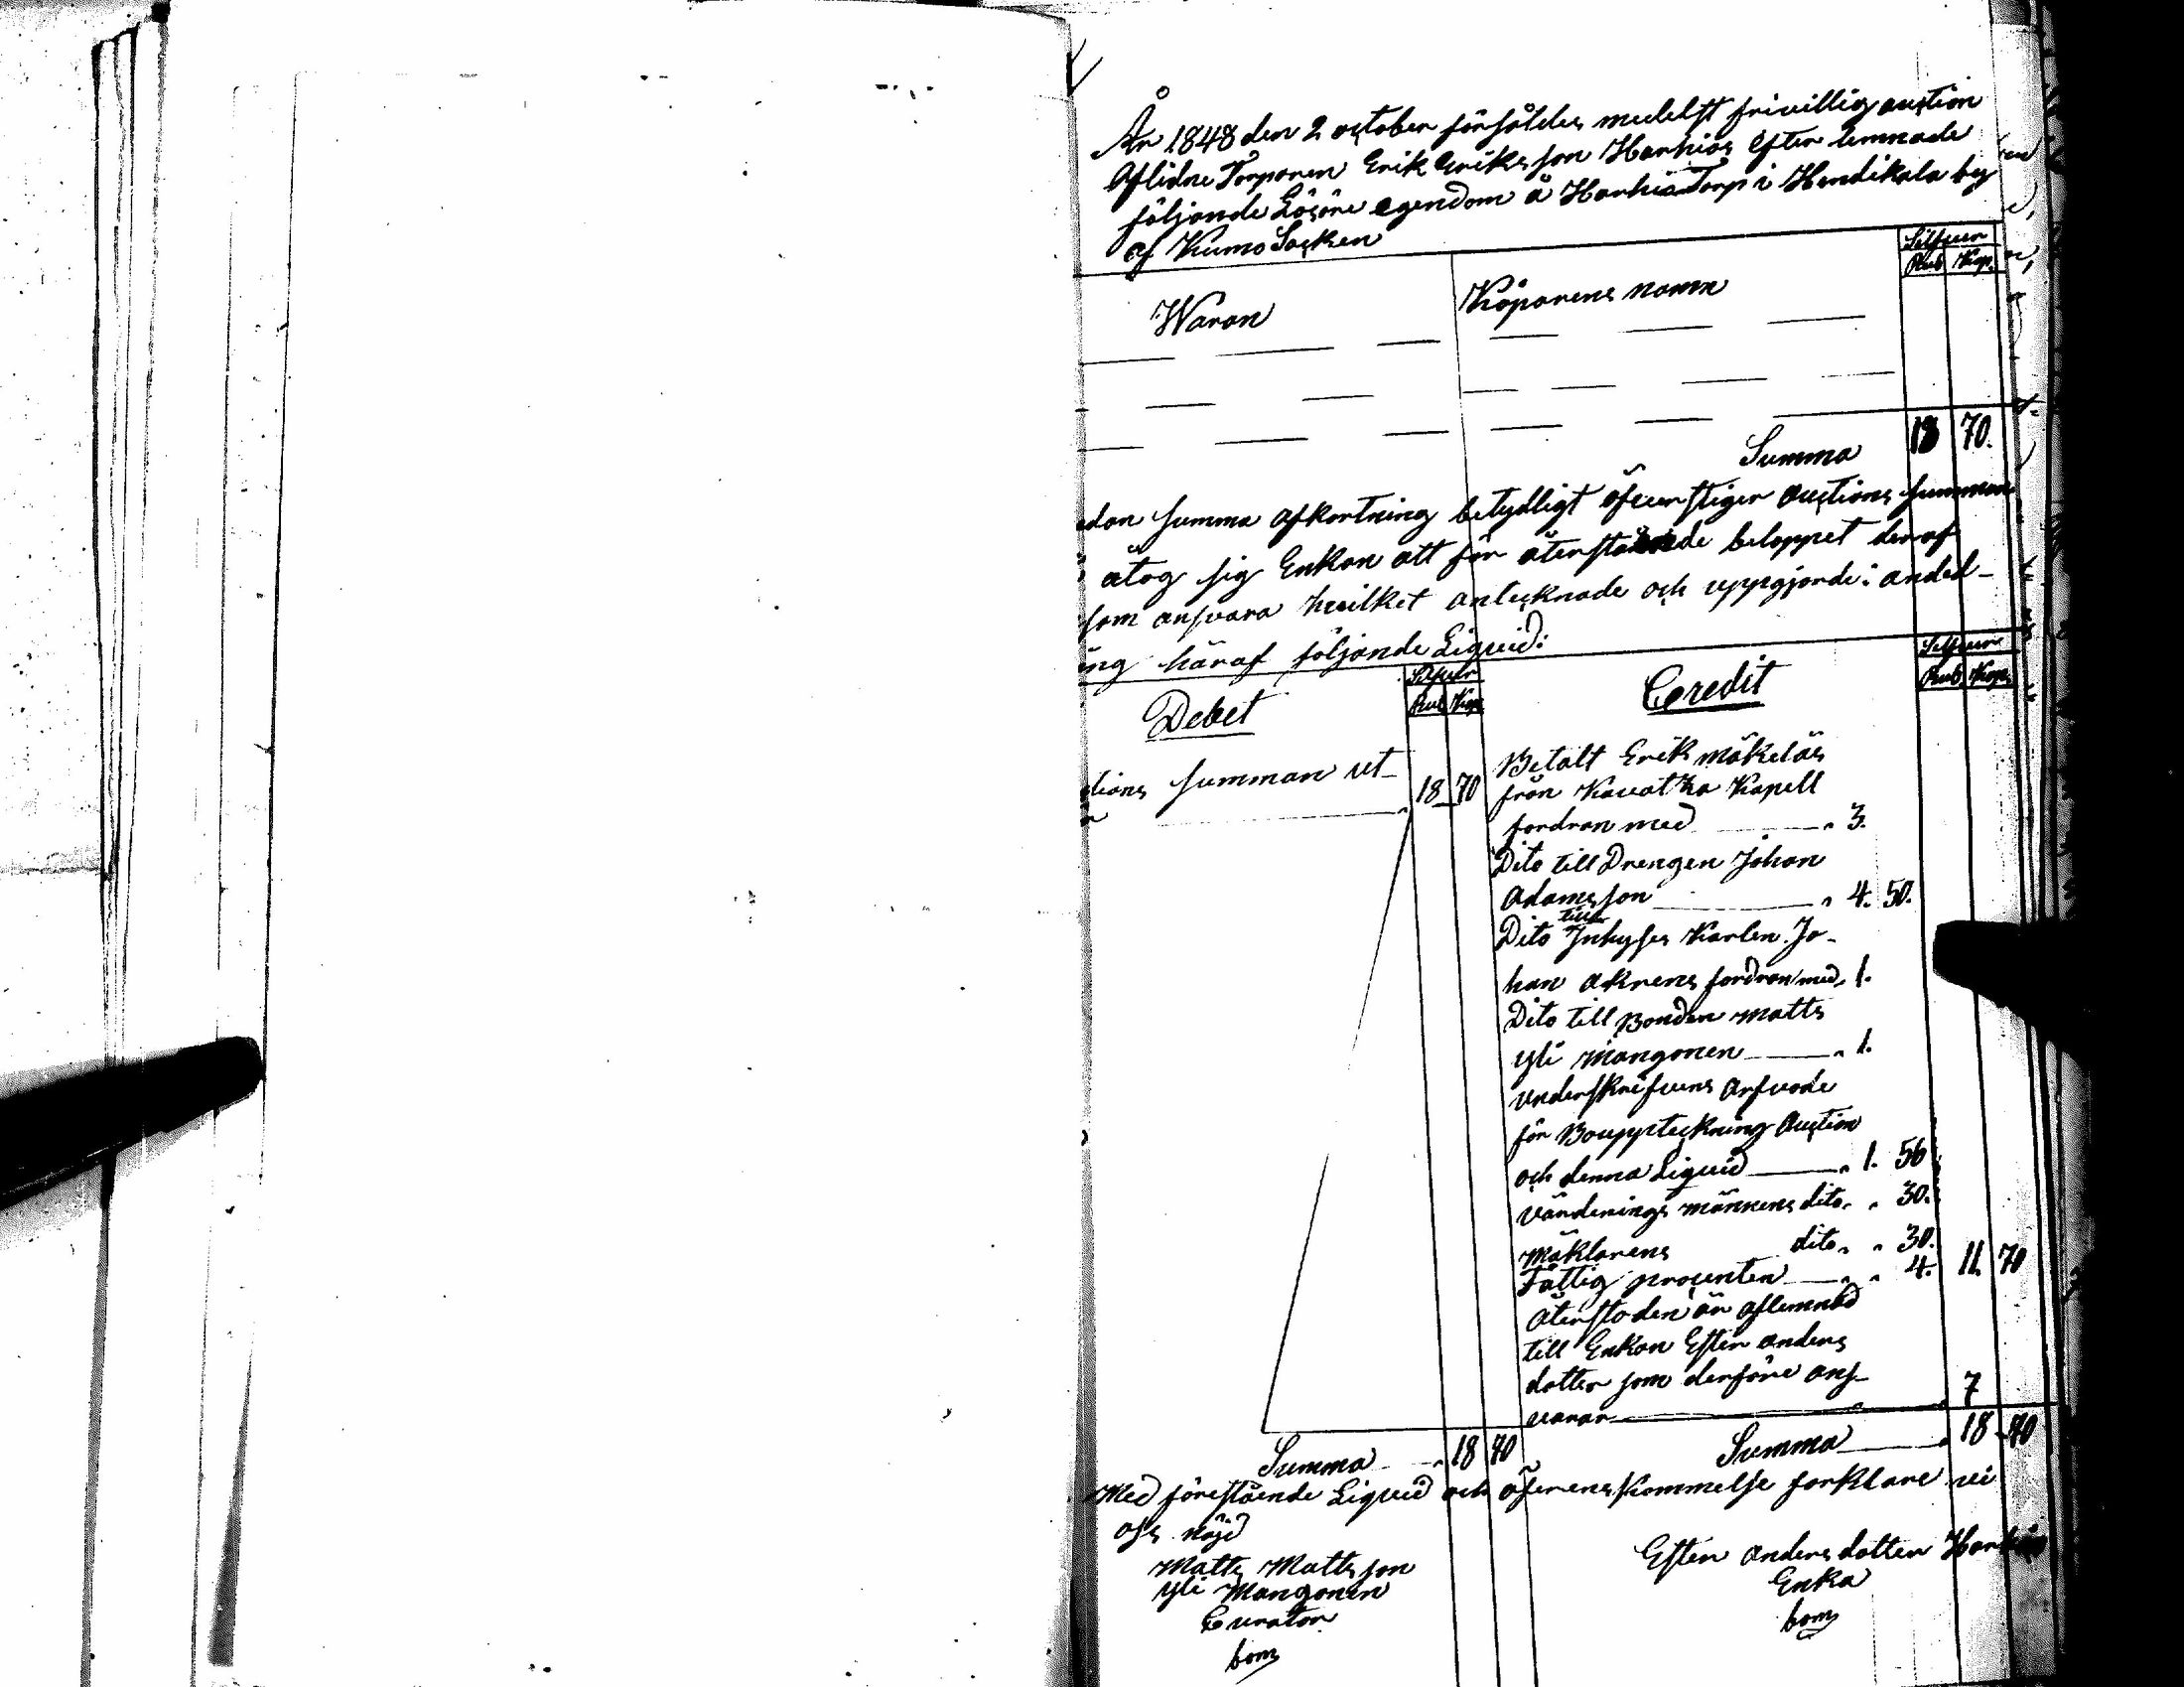 År 1848 den 2 october försåldes medelst frivillig auction
Aflidne Torparen Erik Eriksson Harhias efter lemnade
följande Lösöre egendom å Harhia Torp i Hendikala by
af Kumo Socken
Silfver
Rub Kop.
Waran
Köparens namn
Summa 18 70.
dan summa afkortning betydligt öfverstiger auctions summan
åtog sig Enkan att för återstående beloppet deraf
som ansvara hvilket antecknade och uppgjorde i anled-
ing häraf följande Liquid:
Debet
Silfver
Rub Kop
Credit
Silfver
Rub. Kop.
tions summan ut-
18 70
Betalt Erik Mäkeläs
från Kauvatka Kapell
fordran med " 3.
Dito till Drengen Johan
Adamsson " 4. 50.
till
Dito Inhyses Karlen Jo-
han Akrens fordran med " 1.
Dito till Bonden Matts
Yli Mangonen " 1.
underskrifvens Arfvode
för Bouppteckning Auction
och denna Liquid " 1. 56
värderings männens dito " " 30.
Mäklarens dito " " 30.
Fattig procenten " " 4. 11. 70
återstoden är aflemnad
till Enkan Ester Anders
dotter som derföre ans-
varar 7
Summa " 18 70
Summa " 18 70
Med förestående Liquid och öfverenskommelse förklare vi
oss nöjd
Matts Mattsson
Yli Mangonen
Curator
bom
Ester Andersdotter Harhia
Enka
bom